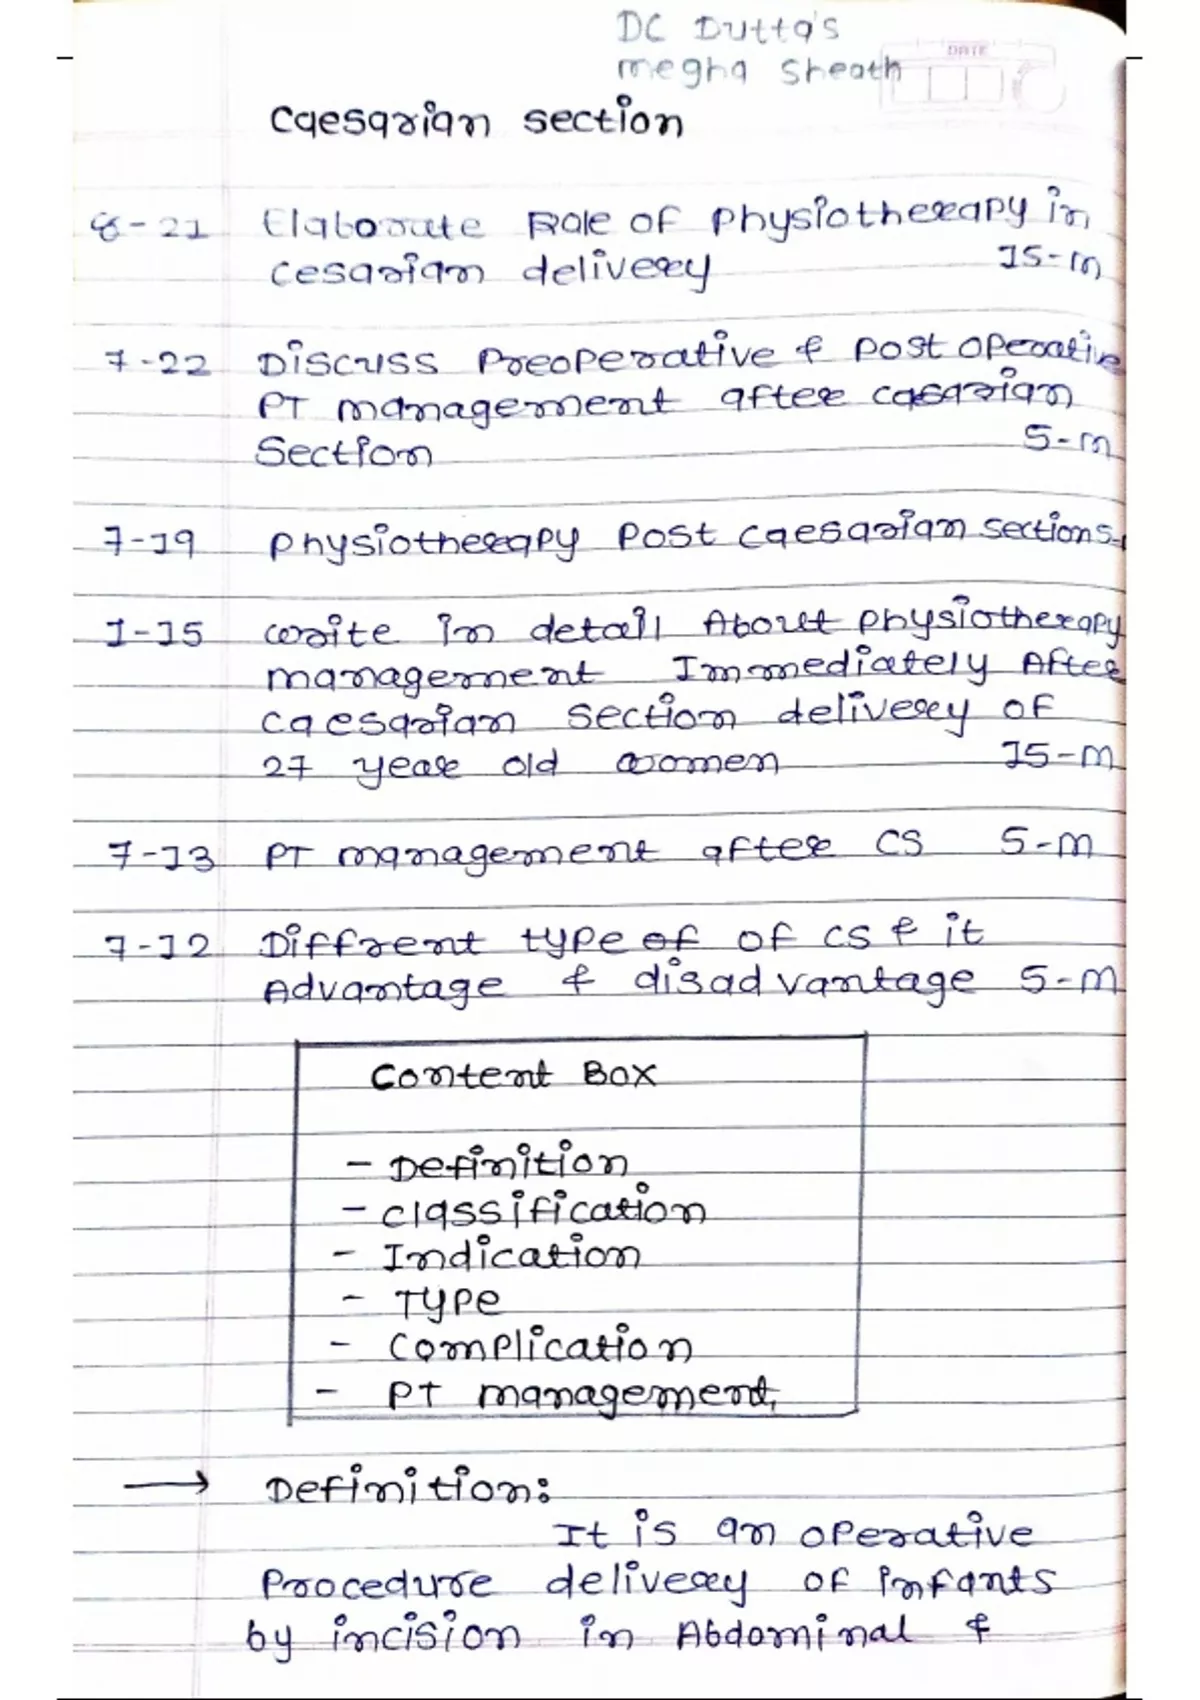 DC Dutta's
megha Sheath
DATE
Caesarian section
8-21 Elaborate Role of Physiotherapy in
Cesarian delivery 15-m
7-22 Discuss Preoperative & post operative
PT management after casarian
Section 5-m
7-19 Physiotherapy Post Caesarian sections.
1-15 write in detail About physiotherapy
management Immediately After
Caesarian section delivery of
27 year old women 15-m
7-13 PT management after CS 5-m
7-12 Diffrent type of of CS & it
Advantage & disadvantage 5-m
Content Box
- Definition
- classification
- Indication
- Type
- Complication
- PT management,
→ Definition:
It is an operative
Procedure delivery of infants
by incision in Abdominal &